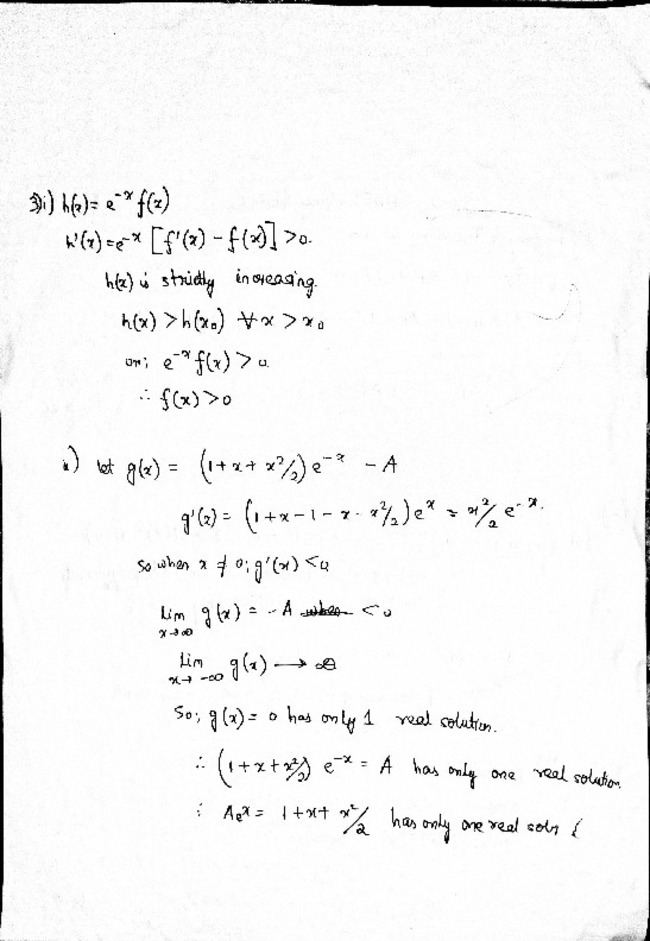 3) i) h(x) = e^{-x} f(x)
h'(x) = e^{-x} [f'(x) - f(x)] > 0.
h(x) is strictly increasing.
h(x) > h(x₀) ∀ x > x₀
or; e^{-x} f(x) > 0.
∴ f(x) > 0
ii) let g(x) = (1 + x + x²/2) e^{-x} - A
g'(x) = (1 + x - 1 - x - x²/2) e^x = x²/2 e^{-x}.
So when x ≠ 0; g'(x) < 0
Lim x→∞ g(x) = -A < 0
Lim x→ -∞ g(x) → ∞
So; g(x) = 0 has only 1 real solution.
∴ (1 + x + x²/2) e^{-x} = A has only one real solution.
∴ Ae^x = 1 + x + x²/2 has only one real soln {